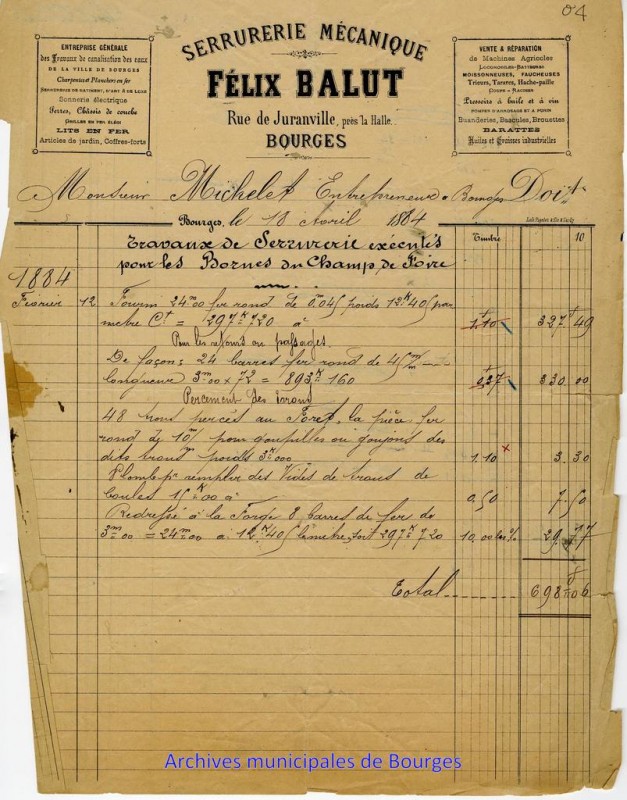 04
SERRURERIE MÉCANIQUE
FÉLIX BALUT
Rue de Juranville, près la Halle.
BOURGES
ENTREPRISE GÉNÉRALE
des Travaux de canalisation des eaux
DE LA VILLE DE BOURGES
Charpentes et Planchers en fer
SERRURERIE DE BATIMENT, D'ART & DE LUXE
Sonnerie électrique
Serres, Châssis de couche
GRILLES EN FER
LITS EN FER
Articles de jardin, Coffres-forts
VENTE & RÉPARATION
de Machines Agricoles
LOCOMOBILES-BATTEUSES
MOISSONNEUSES, FAUCHEUSES
Trieurs, Tarares, Hache-paille
COUPE-RACINES
Pressoirs à huile et à vin
POMPES D'ARROSAGE ET A PURIN
Buanderies, Bascules, Brouettes
BARATTES
Huiles et Graisses industrielles
Monsieur Michelet Entrepreneur à Bourges Doit
Bourges, le 18 Avril 1884
Travaux de Serrurerie exécutés Timbre 10
pour les Bornes du Champ de Foire
1884
Février 12 Fourni 24m00 fer rond de 0m045 poids 12K405 par
mètre Ct = 297K720 à 1.10 327 49
Pour les refouis ou passages
De façon: 24 barres fer rond de 45m/m
longueur 3m00 x 72 = 893K160 0,37 330 00
Percement des trous
48 trous percés au Foret, la pièce fer
rond de 10m/ pour goupilles ou goujons des
dits trous poids 3K000 1.10 3.30
Plomb pr remplir des Vides de trous de
boules 15K00 à 0,50 7.50
Redressé à la Forge 8 barres de fer de
3m00 = 24m00 à 12K405 le mètre, soit 297K720 10.00 les % 29.77
Total 698 06
Archives municipales de Bourges